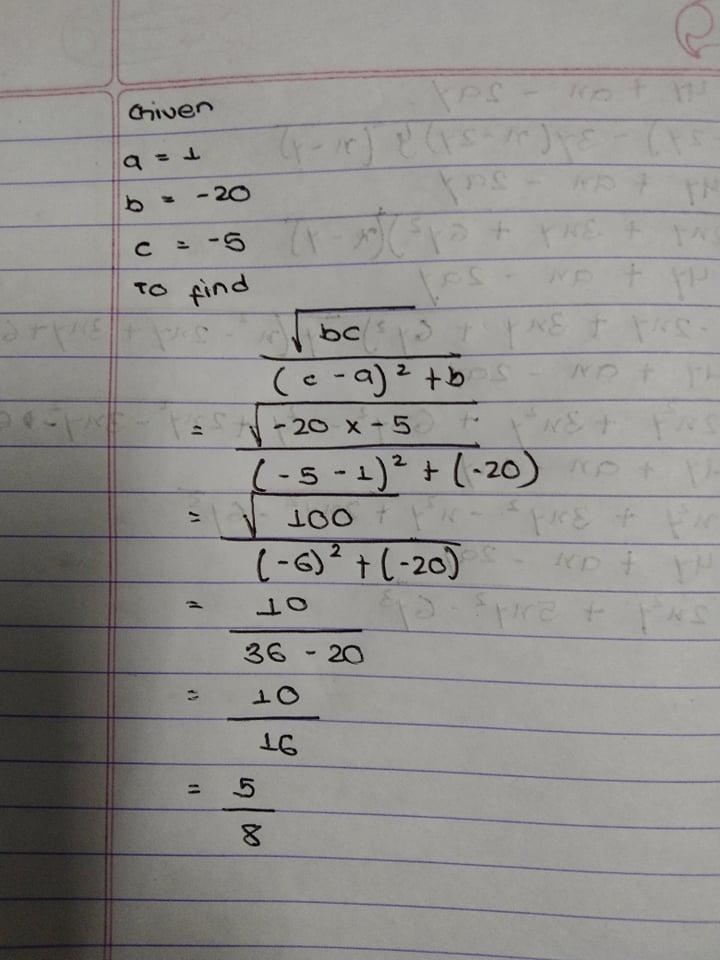 Given
a = 1
b = -20
c = -5
To find
√bc
(c - a)² + b
= √-20 x -5
(-5 - 1)² + (-20)
= √100
(-6)² + (-20)
= 10
36 - 20
= 10
16
= 5
8